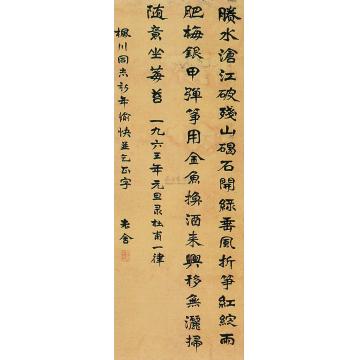 賸水滄江破殘山碣石開綠垂風折筍紅綻雨
肥梅銀甲彈箏用金魚換酒來興移無灑掃
随意坐莓苔 一九六三年元旦录杜甫一律
楓川同志新年愉快並乞正字 老舍